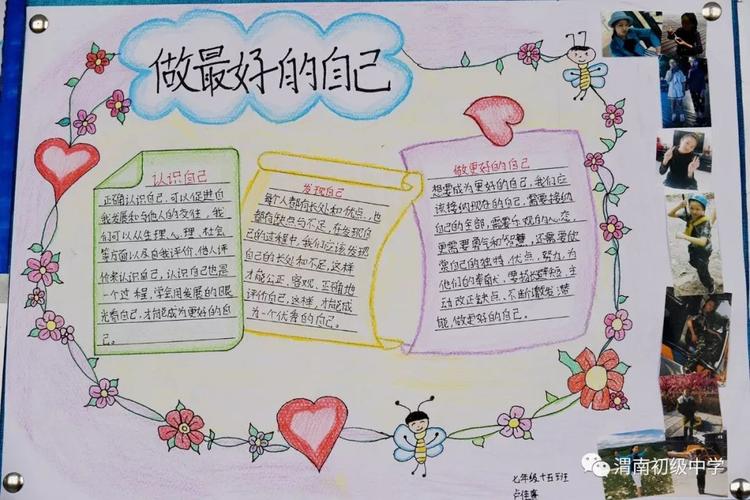 做最好的自己
认识自己
正确认识自己，可以促进自
我发展和与他人的交往，我
们可以从生理、心理、社会
等方面以及自我评价，他人评
价来认识自己，认识自己也是
一个过程，学会用发展的眼
光看自己，才能成为更好的自
己。
发现自己
每个人都有长处和优点，也
都有缺点与不足，在发现自
己的过程中，我们应该发现
自己的长处和不足，这样
才能公正、客观、正确地
评价自己，这样，才能成
为一个优秀的自己。
做更好的自己
想要成为更好的自己，我们应
该接纳现在的自己，需要接纳
自己的全部，需要乐观的心态，
更需要勇气和智慧，还需要欣
赏自己的独特，优点，努力，为
他们的奉献，要扬长避短，主
动改正缺点，不断激发潜
能，做更好的自己。
七年级十五班
渭南初级中学